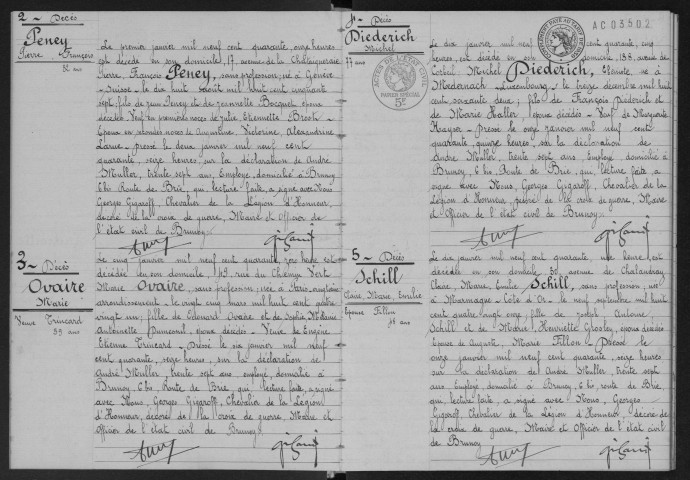 2 - Décès
Peney
Pierre François
82 ans
Le premier janvier mil neuf cent quarante, onze heures
est décédé en son domicile, 17, avenue de la Châtaigneraie
Pierre, François Peney, sans profession, né à Genève
Suisse - le dix huit mil huit cent cinquante
sept; fils de Jean Peney et de Jeannette Bocquet, époux
décédés - Veuf en premières noces de Julie Etiennette Broch -
Epoux en secondes noces de Augustine, Victorine Alexandrine
Larue - Dressé le deux janvier mil neuf cent
quarante, seize heures, sur la déclaration de André
Muller, trente sept ans, Employé, domicilié à Brunoy
6 bis Route de Brie, qui, lecture faite, a signé avec Nous
Georges Gigaroff, Chevalier de la Légion d'Honneur,
décoré de la croix de guerre, Maire et Officier de
l'état civil de Brunoy
3 - Décès
Ovaire
Marie
Veuve Trincard
59 ans
Le cinq janvier mil neuf cent quarante, est
décédée en son domicile, 43, rue du Champ Vert
Marie Ovaire, sans profession, née à Paris,
arrondissement, le vingt cinq mars mil huit cent quatre
vingt un; fille de Edouard Ovaire et de Sophie Mélanie
Antoinette époux décédés - Veuve de Eugène
Etienne Trincard - Dressé le six janvier mil neuf
cent quarante, seize heures, sur la déclaration de
André Muller, trente sept ans, employé, domicilié à
Brunoy, 6 bis, Route de Brie, qui, lecture faite, a signé
avec Nous, Georges Gigaroff, Chevalier de la Légion
d'Honneur, décoré de la croix de guerre, Maire et
Officier de l'état civil de Brunoy
4 - Décès
Diederich
Michel
77 ans
ACTES DE L'ETAT CIVIL
PAPIER SPÉCIAL
5F
AC 03502
Le dix janvier mil neuf cent quarante, cinq
heures, est décédé en son domicile, 138, avenue de
Corbeil Michel Diederich, né à
Medernach - Luxembourg - le treize décembre mil huit
cent soixante deux; fils de François Diederich et
de Marie Haller, époux décédés - Veuf de Marguerite
Krayser - Dressé le onze janvier mil neuf cent
quarante, quinze heures, sur la déclaration de
André Muller, trente sept ans, Employé, domicilié à
Brunoy, 6 bis, Route de Brie, qui, lecture faite, a
signé avec Nous, Georges Gigaroff, Chevalier de la
Légion d'Honneur, décoré de la croix de guerre, Maire
et Officier de l'état civil de Brunoy
5 - Décès
Schill
Claire, Marie, Emilie
Epouse Fillon
ans
Le dix janvier mil neuf cent quarante, une heure, est
décédée en son domicile, 30, avenue de Chalandray,
Claire, Marie, Emilie Schill, sans profession, née
à Marmagne - Côte d'Or - le neuf septembre mil huit
cent quatre vingt onze; fille de Joseph Antoine
Schill et de Marie, Henriette Grosley, époux décédés
Epouse de Auguste, Marie Fillon - Dressé le
onze janvier mil neuf cent quarante, seize heures
sur la déclaration de André Muller, trente sept
ans, Employé, domicilié à Brunoy, 6 bis, route de Brie,
qui, lecture faite, a signé avec Nous, Georges
Gigaroff, Chevalier de la Légion d'Honneur, décoré de
la croix de guerre, Maire et Officier de l'état civil
de Brunoy